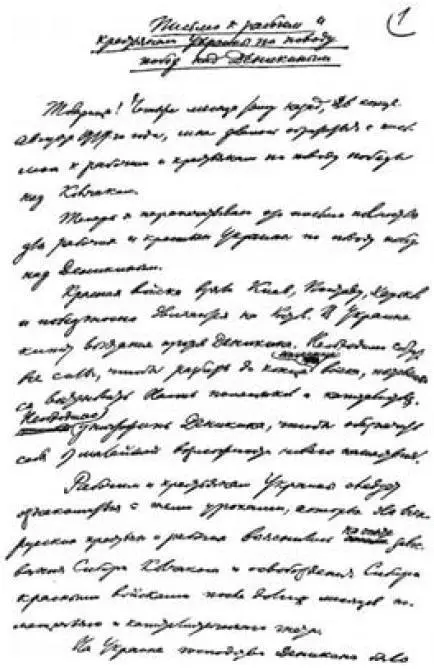 Письмо к рабочим и
крестьянам Украины по поводу
побед над Деникиным
1
Товарищи! Четыре месяца тому назад, в конце
августа 1919-го года, мне довелось обратиться с
к рабочим и крестьянам по поводу победы
над Колчаком.
Теперь я перепечатываю это письмо полностью
для рабочих и крестьян Украины по поводу побед
над Деникиным.
Красные войска взяли Киев, Полтаву, Харьков
и победоносно двигаются на Ростов. В Украине
кипит восстание против Деникина. Необходимо собрать
все силы, чтобы разбить до конца войска,
восстановить власть помещиков и капиталистов.
Необходимо уничтожить Деникина, чтобы обеспечить
себя от малейшей возможности нового нашествия.
Рабочим и крестьянам Украины следует
ознакомиться с теми уроками, которые для всех
русских крестьян и рабочих
Сибири Колчаком и освобождения Сибири
красными войсками после долгих месяцев
помещичьего и капиталистического гнета.
На Украине господство Деникина было